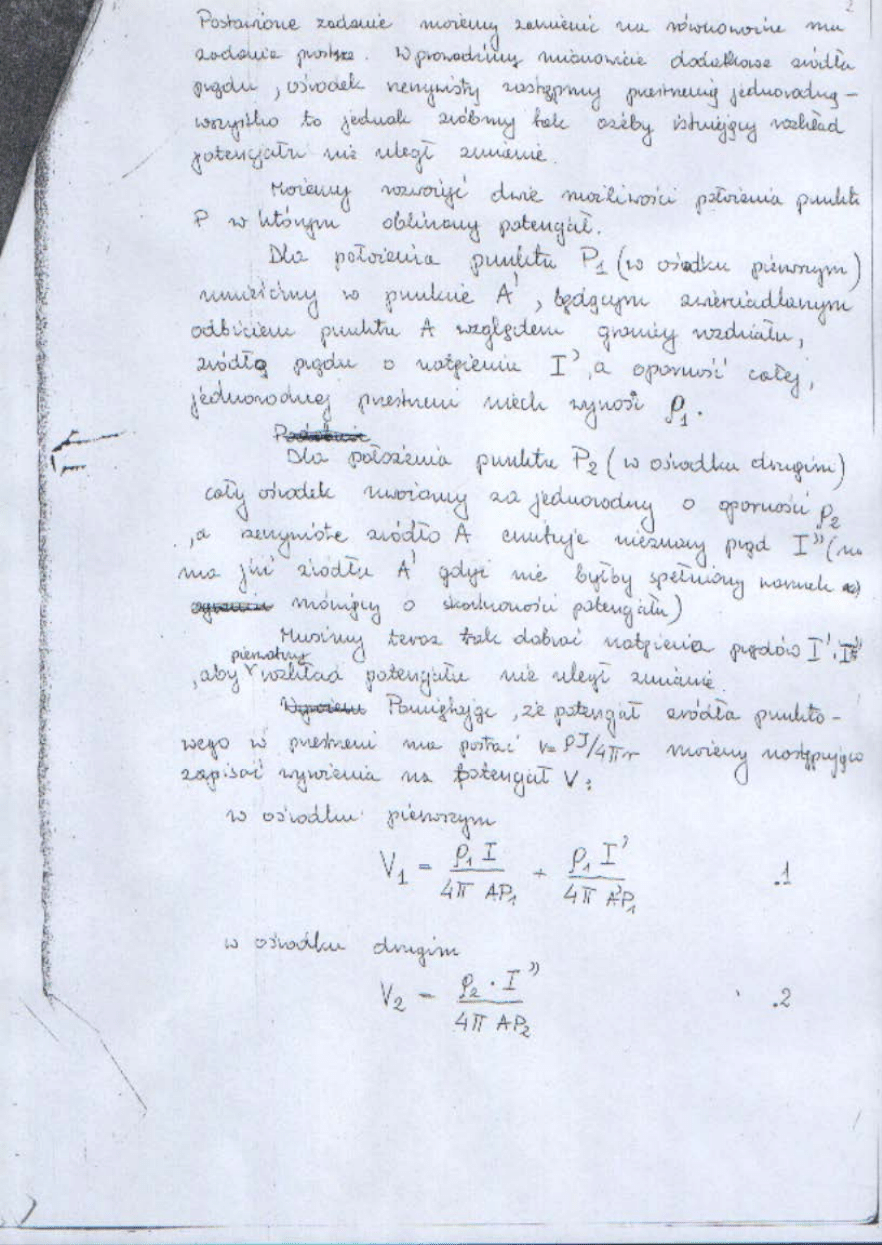 2
Postawione zadanie możemy zamienić na równoważne mu
zadanie prostsze. Wprowadzimy mianowicie dodatkowe źródła
prądu, ośrodek rzeczywisty zastąpmy przestrzenią jednorodną -
wszystko to jednak zróbmy tak ażeby istniejący rozkład
potencjału nie uległ zmianie.
Możemy rozważyć dwie możliwości położenia punktu
P w którym obliczamy potencjał.
Dla położenia punktu P₁ (w ośrodku pierwszym)
umieścimy w punkcie A', będącym zwierciadlanym
odbiciem punktu A względem granicy rozdziału,
źródło prądu o natężeniu I', a oporność całej,
jednorodnej przestrzeni niech wynosi ρ₁.
Podobnie
Dla położenia punktu P₂ (w ośrodku drugim)
cały ośrodek uważamy za jednorodny o oporności ρ₂
, a rzeczywiste źródło A emituje nieznany prąd I'' (nie
ma już źródła A' gdyż nie byłby spełniony warunek
mówiący o skończoności potencjału)
Musimy teraz tak dobrać natężenia prądów I', I''
, aby pierwotny rozkład potencjału nie uległ zmianie.
Pamiętając, że potencjał źródła punkto-
wego w przestrzeni ma postać v = ρJ/4πr możemy następująco
zapisać wyrażenia na potencjał V:
w ośrodku pierwszym
V₁ = ρ₁ I / 4π AP₁ + ρ₁ I' / 4π A'P₁ .1
w ośrodku drugim
V₂ = ρ₂ · I'' / 4π AP₂ .2